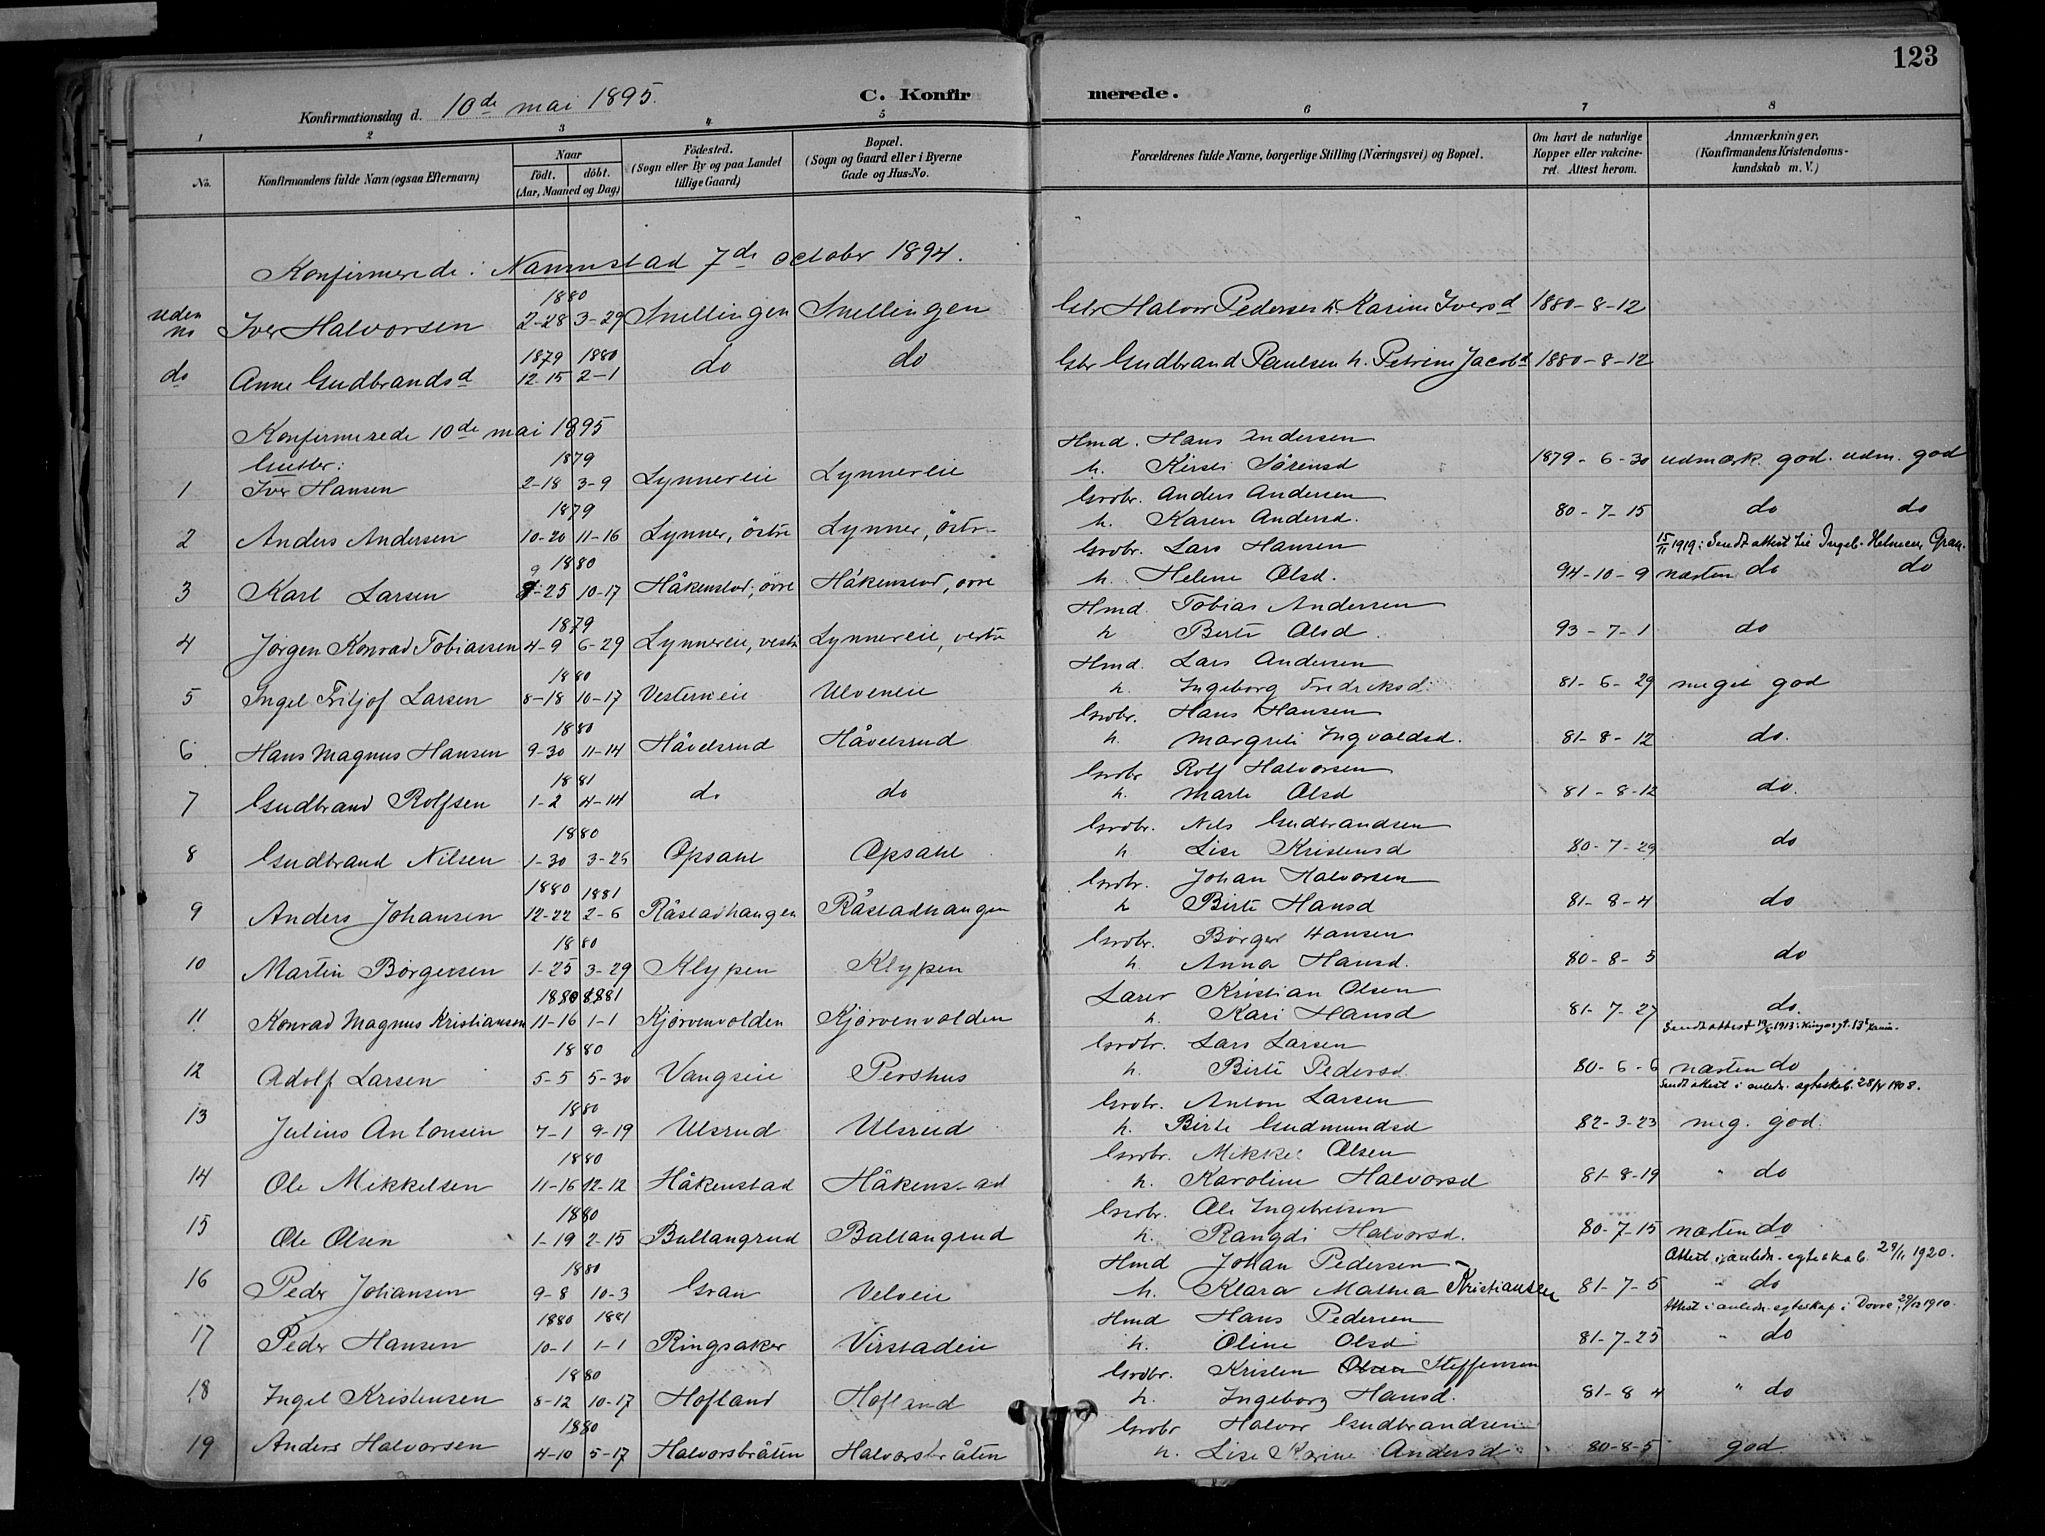 123
Konfirmationsdag d. 10de mai 1895. C. Konfirmerede.
1 2 3 4 5 6 7 8
No. Konfirmandens fulde Navn (ogsaa Efternavn) Naar födt. döbt. (Aar, Maaned og Dag) Födested. (Sogn eller By og paa Landet tillige Gaard) Bopæl. (Sogn og Gaard eller i Byerne Gade og Hus-No. Forældrenes fulde Navne, borgerlige Stilling (Næringsvei) og Bopæl. Om havt de naturlige Kopper eller vakcineret. Attest herom. Anmærkninger. (Konfirmandens Kristendomskundskab m. V.)
Konfirmerede i Namnstad 7de october 1894.
1880
uden no Iver Halvorsen 2-28 3-29 Snellingen Snellingen Gbr Halvor Pedersen h. Karine Iversd 1880-8-12
1879 1880
do Anne Gudbrandsd 12-15 2-1 do do Gbr Gudbrand Paulsen h. Petrine Jacobd 1880-8-12
Konfirmerede 10de mai 1895
Gutter:
1879 Hmd. Hans Andersen
1 Iver Hansen 2-18 3-9 Lynnereie Lynnereie h. Kirsti Sörensd 1879-6-30 udmærk. god. udm. god
1879 Grdbr. Anders Andersen
2 Anders Andersen 10-20 11-16 Lynner, östre Lynner, östr. h. Karen Andersd. 80-7-15 do do
15/11 1919: Sendt attest til Ingeb. Helmeus Gran.
1880 Grdbr. Lars Hansen
3 Karl Larsen 9-25 10-17 Håkenstad, övre Håkenstad, övre h. Helene Olsd. 94-10-9 næsten do do
1879 Hmd. Tobias Andersen
4 Jörgen Konrad Tobiassen 4-9 6-29 Lynnereie, vestre Lynnereie, vestre h Berte Olsd. 93-7-1 do
1880 Hmd. Lars Andersen
5 Ingel Fritjof Larsen 8-18 10-17 Vesterneie Ulveneie h. Ingeborg Fredriksd. 81-6-29 meget god
1880 Grdbr. Hans Hansen
6 Hans Magnus Hansen 9-30 11-14 Håvelsrud Håvelsrud h. Margrete Ingvaldsd. 81-8-12 do.
1881 Grdbr Rolf Halvorsen
7 Gudbrand Rolfsen 1-2 4-14 do do h. Marte Olsd 81-8-12 do.
1880 Grdbr. Nils Gudbrandsen
8 Gudbrand Nilsen 1-30 3-25 Opsahl Opsahl h Lise Kristensd 80-7-29 do
1880 1881 Grdbr. Johan Halvorsen
9 Anders Johansen 12-22 2-6 Råstadhangen Råstadhangen h Birte Hansd 81-8-4 do
1880 Grdbr. Börger Hansen
10 Martin Börgersen 1-25 3-29 Klypen Klypen h. Anna Hansd. 80-8-5 do
1880 1881 Lærer Kristian Olsen
11 Konrad Magnus Kristiansen 11-16 1-1 Kjörvenvolden Kjörvenvolden h. Kari Hansd 81-7-27 do.
1880 Grdbr. Lars Larsen
12 Adolf Larsen 5-5 5-30 Vangseie Pershus h. Birte Pedersd 80-6-6 næsten do
Sendt attest i anledn. egteskab. 28/4 1908.
1880 Grdbr. Anton Larsen
13 Julius Antonsen 7-1 9-19 Ulsrud Ulsrud h. Birte Gudmundsd 82-3-23 meg. god.
1880 Grdbr. Mikkel Olsen
14 Ole Mikkelsen 11-16 12-12 Håkenstad Håkenstad h. Karoline Halvorsd 81-8-19 " do
1880 Grdbr. Ole Ingebretsen
15 Ole Olsen 1-19 2-15 Ballangrud Ballangrud h. Rangdi Halvorsd. 80-7-15 næsten do
Attest i anledn. egteskab. 29/11 1920.
1880 Hmd Johan Pedersen
16 Peder Johansen 9-8 10-3 Gran Velveie h. Klara Mathea Kristiansen 81-7-5 " do
Attest i anledn. egteskap i Dovre 29/12 1910.
1880 1881 Hmd Hans Pedersen
17 Peder Hansen 10-1 1-1 Ringsaker Virstadeie h. Oline Olsd 81-7-25 " do
1880 Grdbr. Kristen Olsen Steffensen
18 Ingel Kristensen 8-12 10-17 Hofland Hofland h. Ingeborg Hansd. 81-8 4 " do
1880 Grdbr Halvor Gudbrandsen
19 Anders Halvorsen 4-10 5-17 Halvorsbråten Halvorsbråten h. Lise Karine Andersd 80-8-5 god.